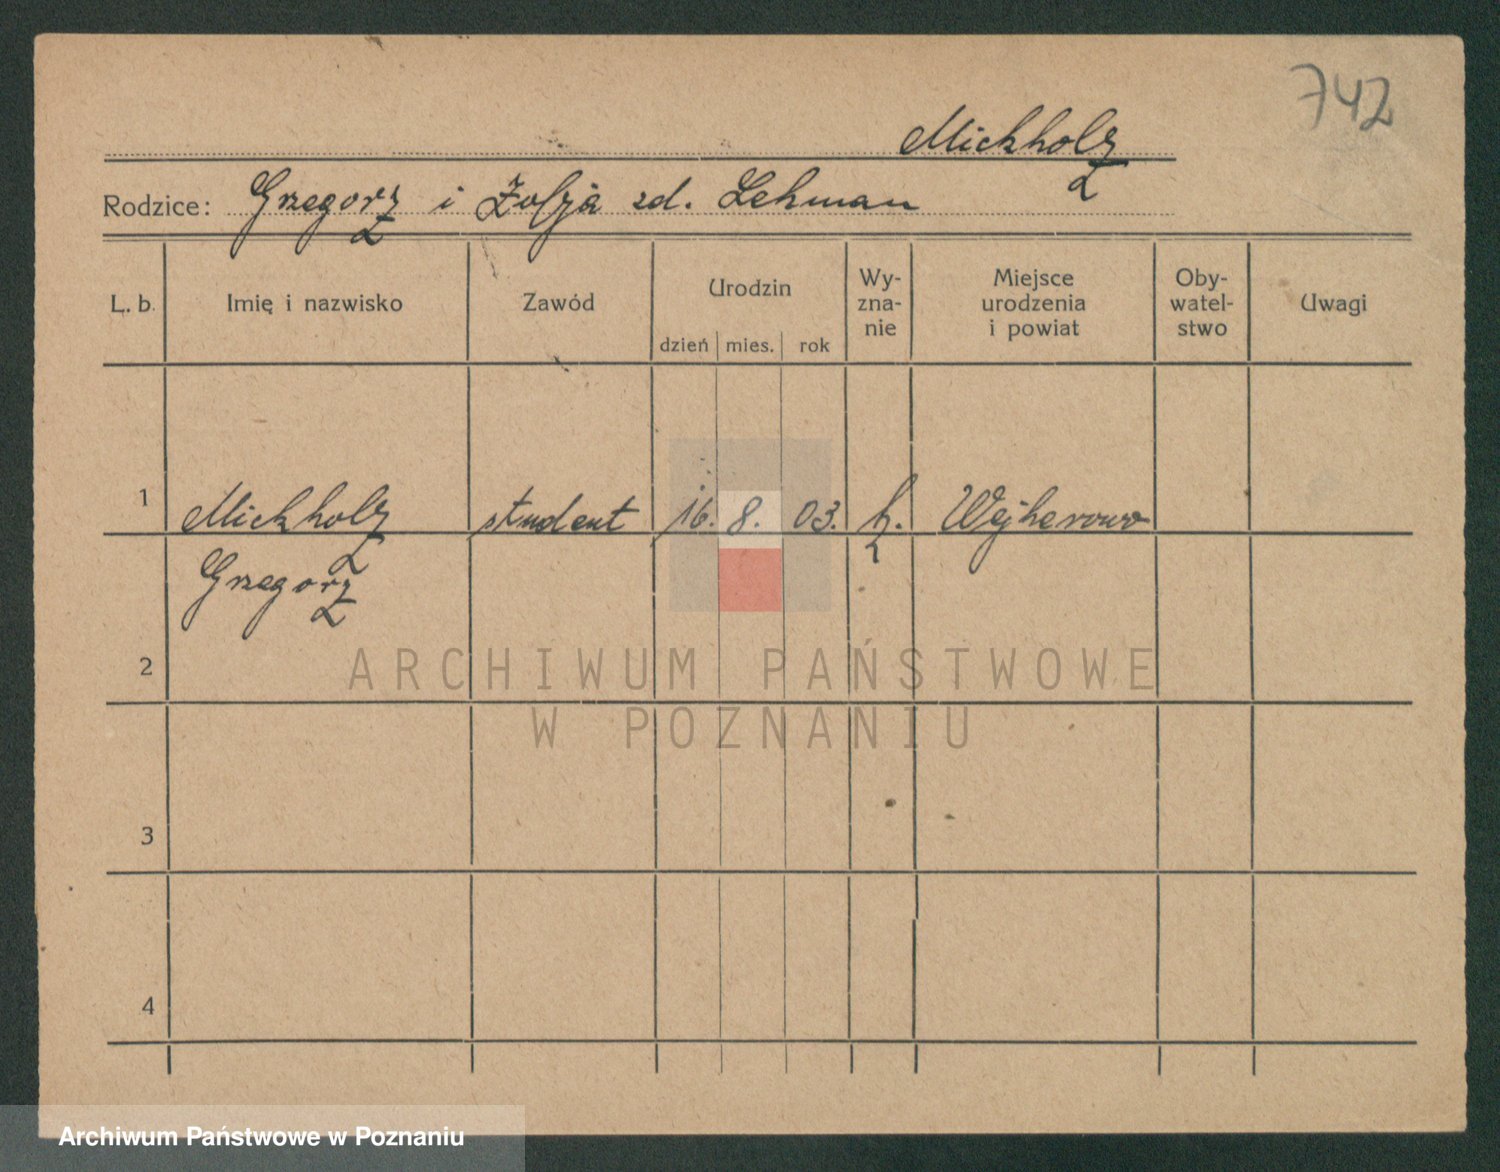 742
Mickholz
Rodzice: Grzegorz i Zofja zd. Lehman
L. b. Imię i nazwisko Zawód Urodzin Wy-zna-nie Miejsce urodzenia i powiat Oby-watel-stwo Uwagi
dzień mies. rok
1 Mickholz student 16. 8. 03. k. Wejherowo
Grzegorz
2
ARCHIWUM PAŃSTWOWE
W POZNANIU
3
4
Archiwum Państwowe w Poznaniu